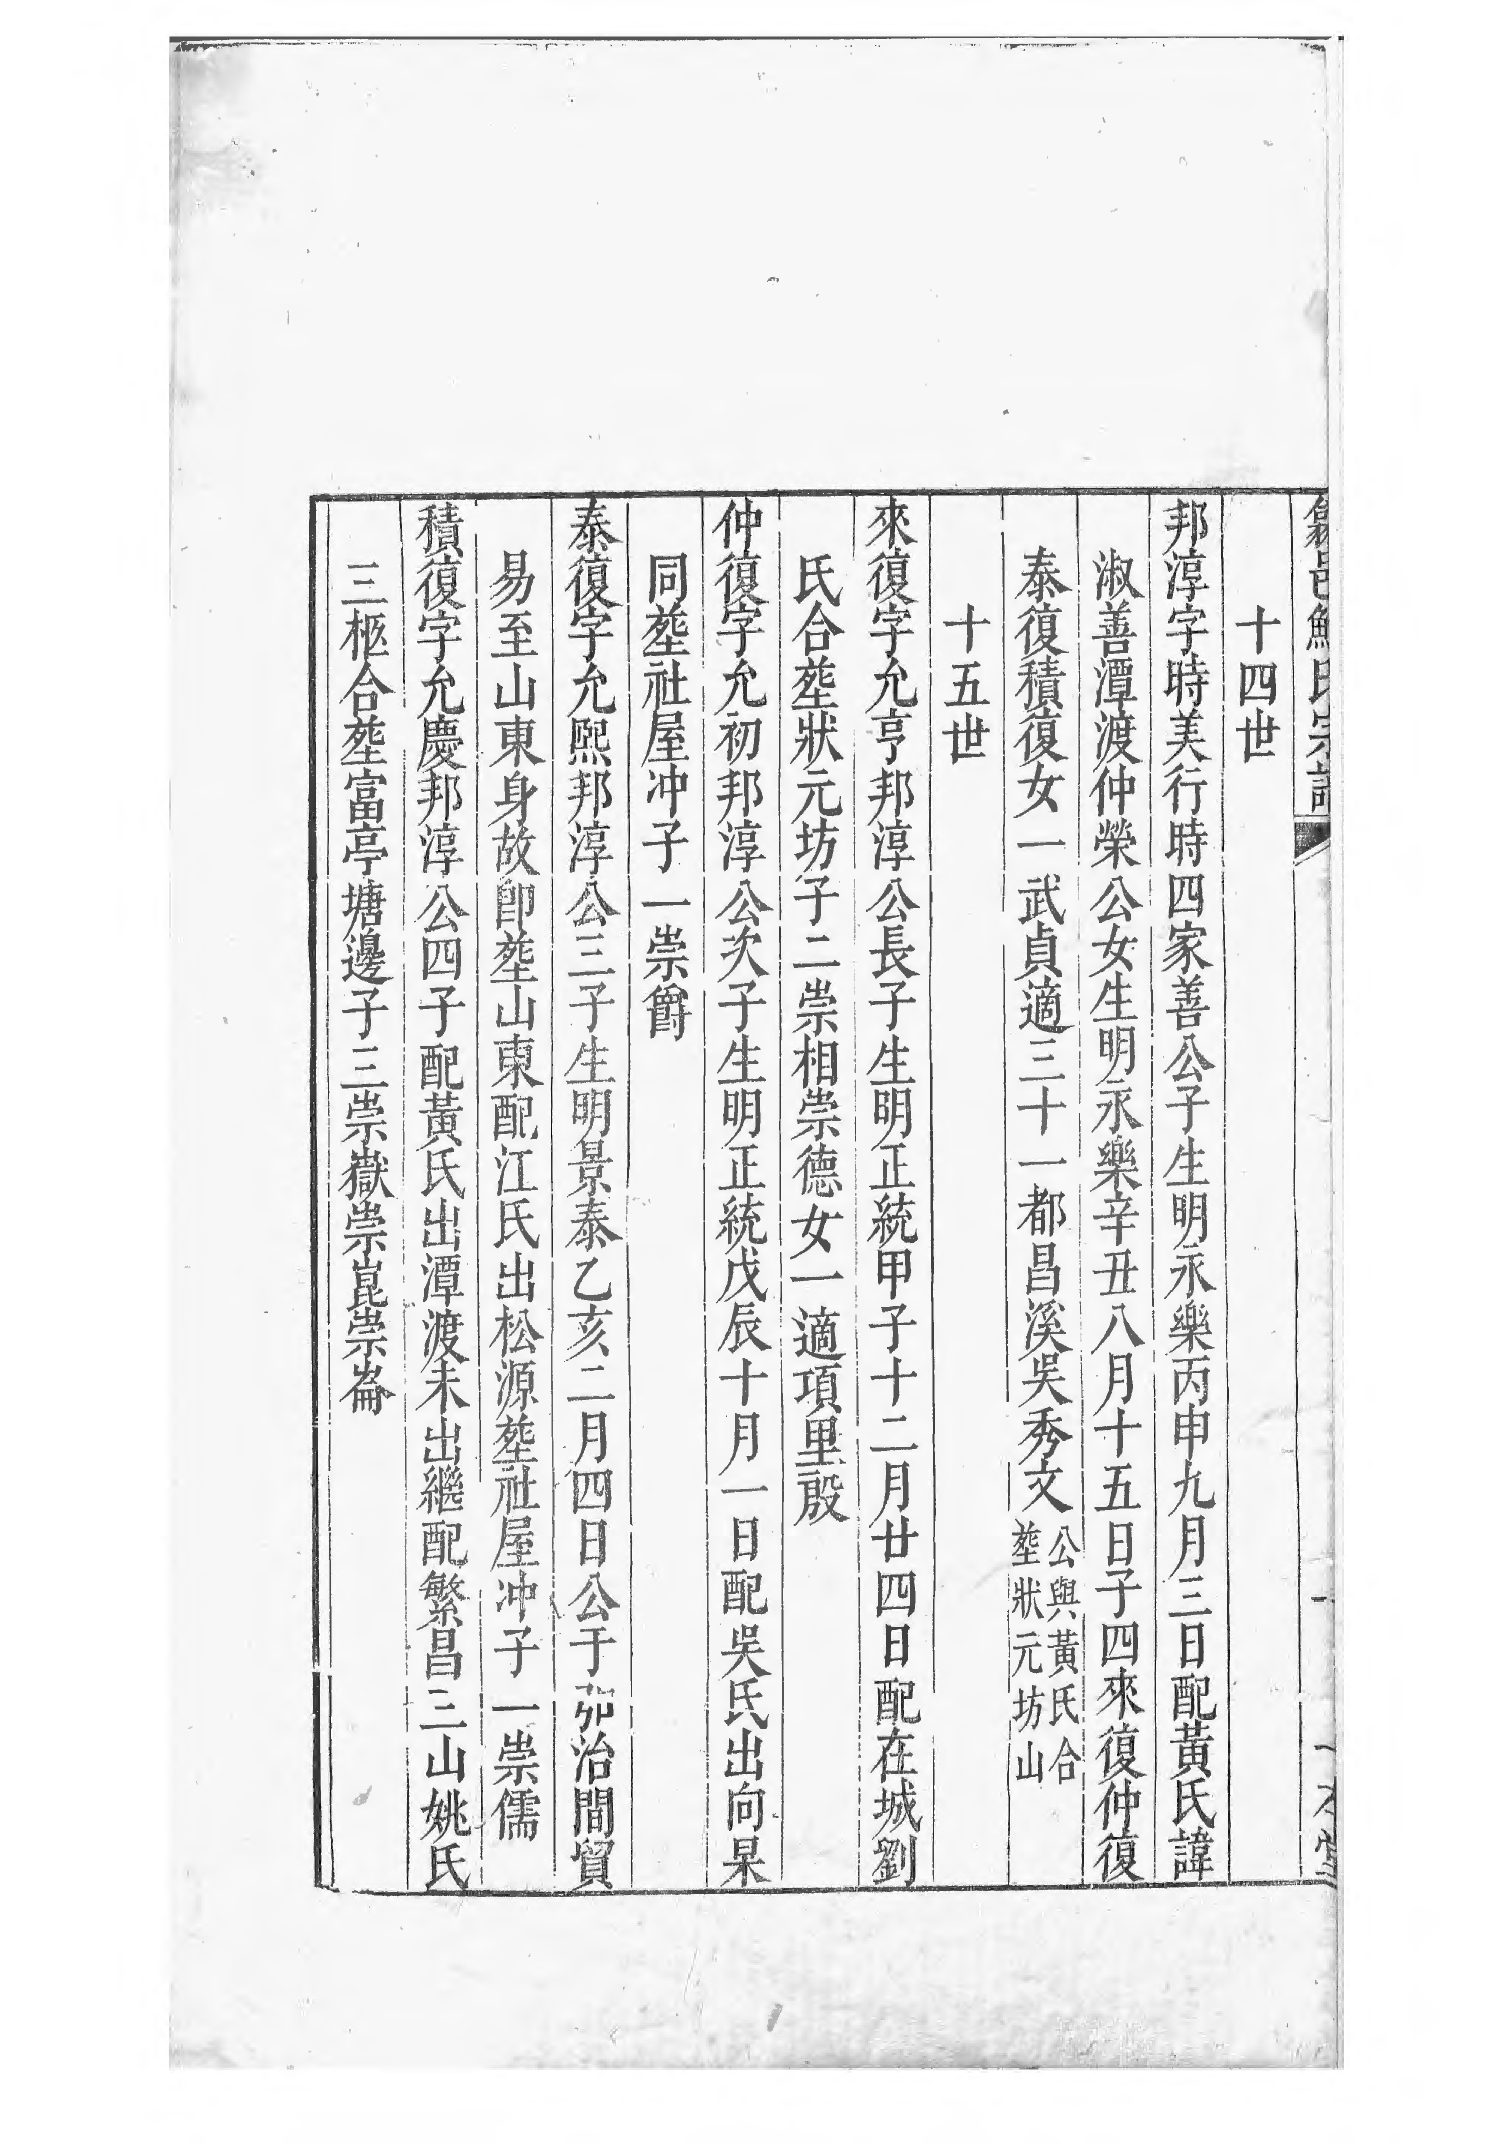 歙邑鮑氏宗譜 一 一本堂
十四世
邦淳字時美行時四家善公子生明永樂丙申九月三日配黃氏諱
淑善潭渡仲榮公女生明永樂辛丑八月十五日子四來復仲復
泰復積復女一武貞適三十一都昌溪吳秀文公與黃氏合
塟狀元坊山
十五世
來復字允亨邦淳公長子生明正統甲子十二月廿四日配在城劉
氏合塟狀元坊子二崇相崇德女一適項里殷
仲復字允初邦淳公次子生明正統戊辰十月一日配吳氏出向杲
同塟社屋冲子一崇爵
泰復字允熙邦淳公三子生明景泰乙亥二月四日公于治間貿
易至山東身故卽塟山東配江氏出松源塟社屋冲子一崇儒
積復字允慶邦淳公四子配黃氏出潭渡未出繼配繁昌三山姚氏
三柩合塟富亭塘邊子三崇嶽崇崑崇崙